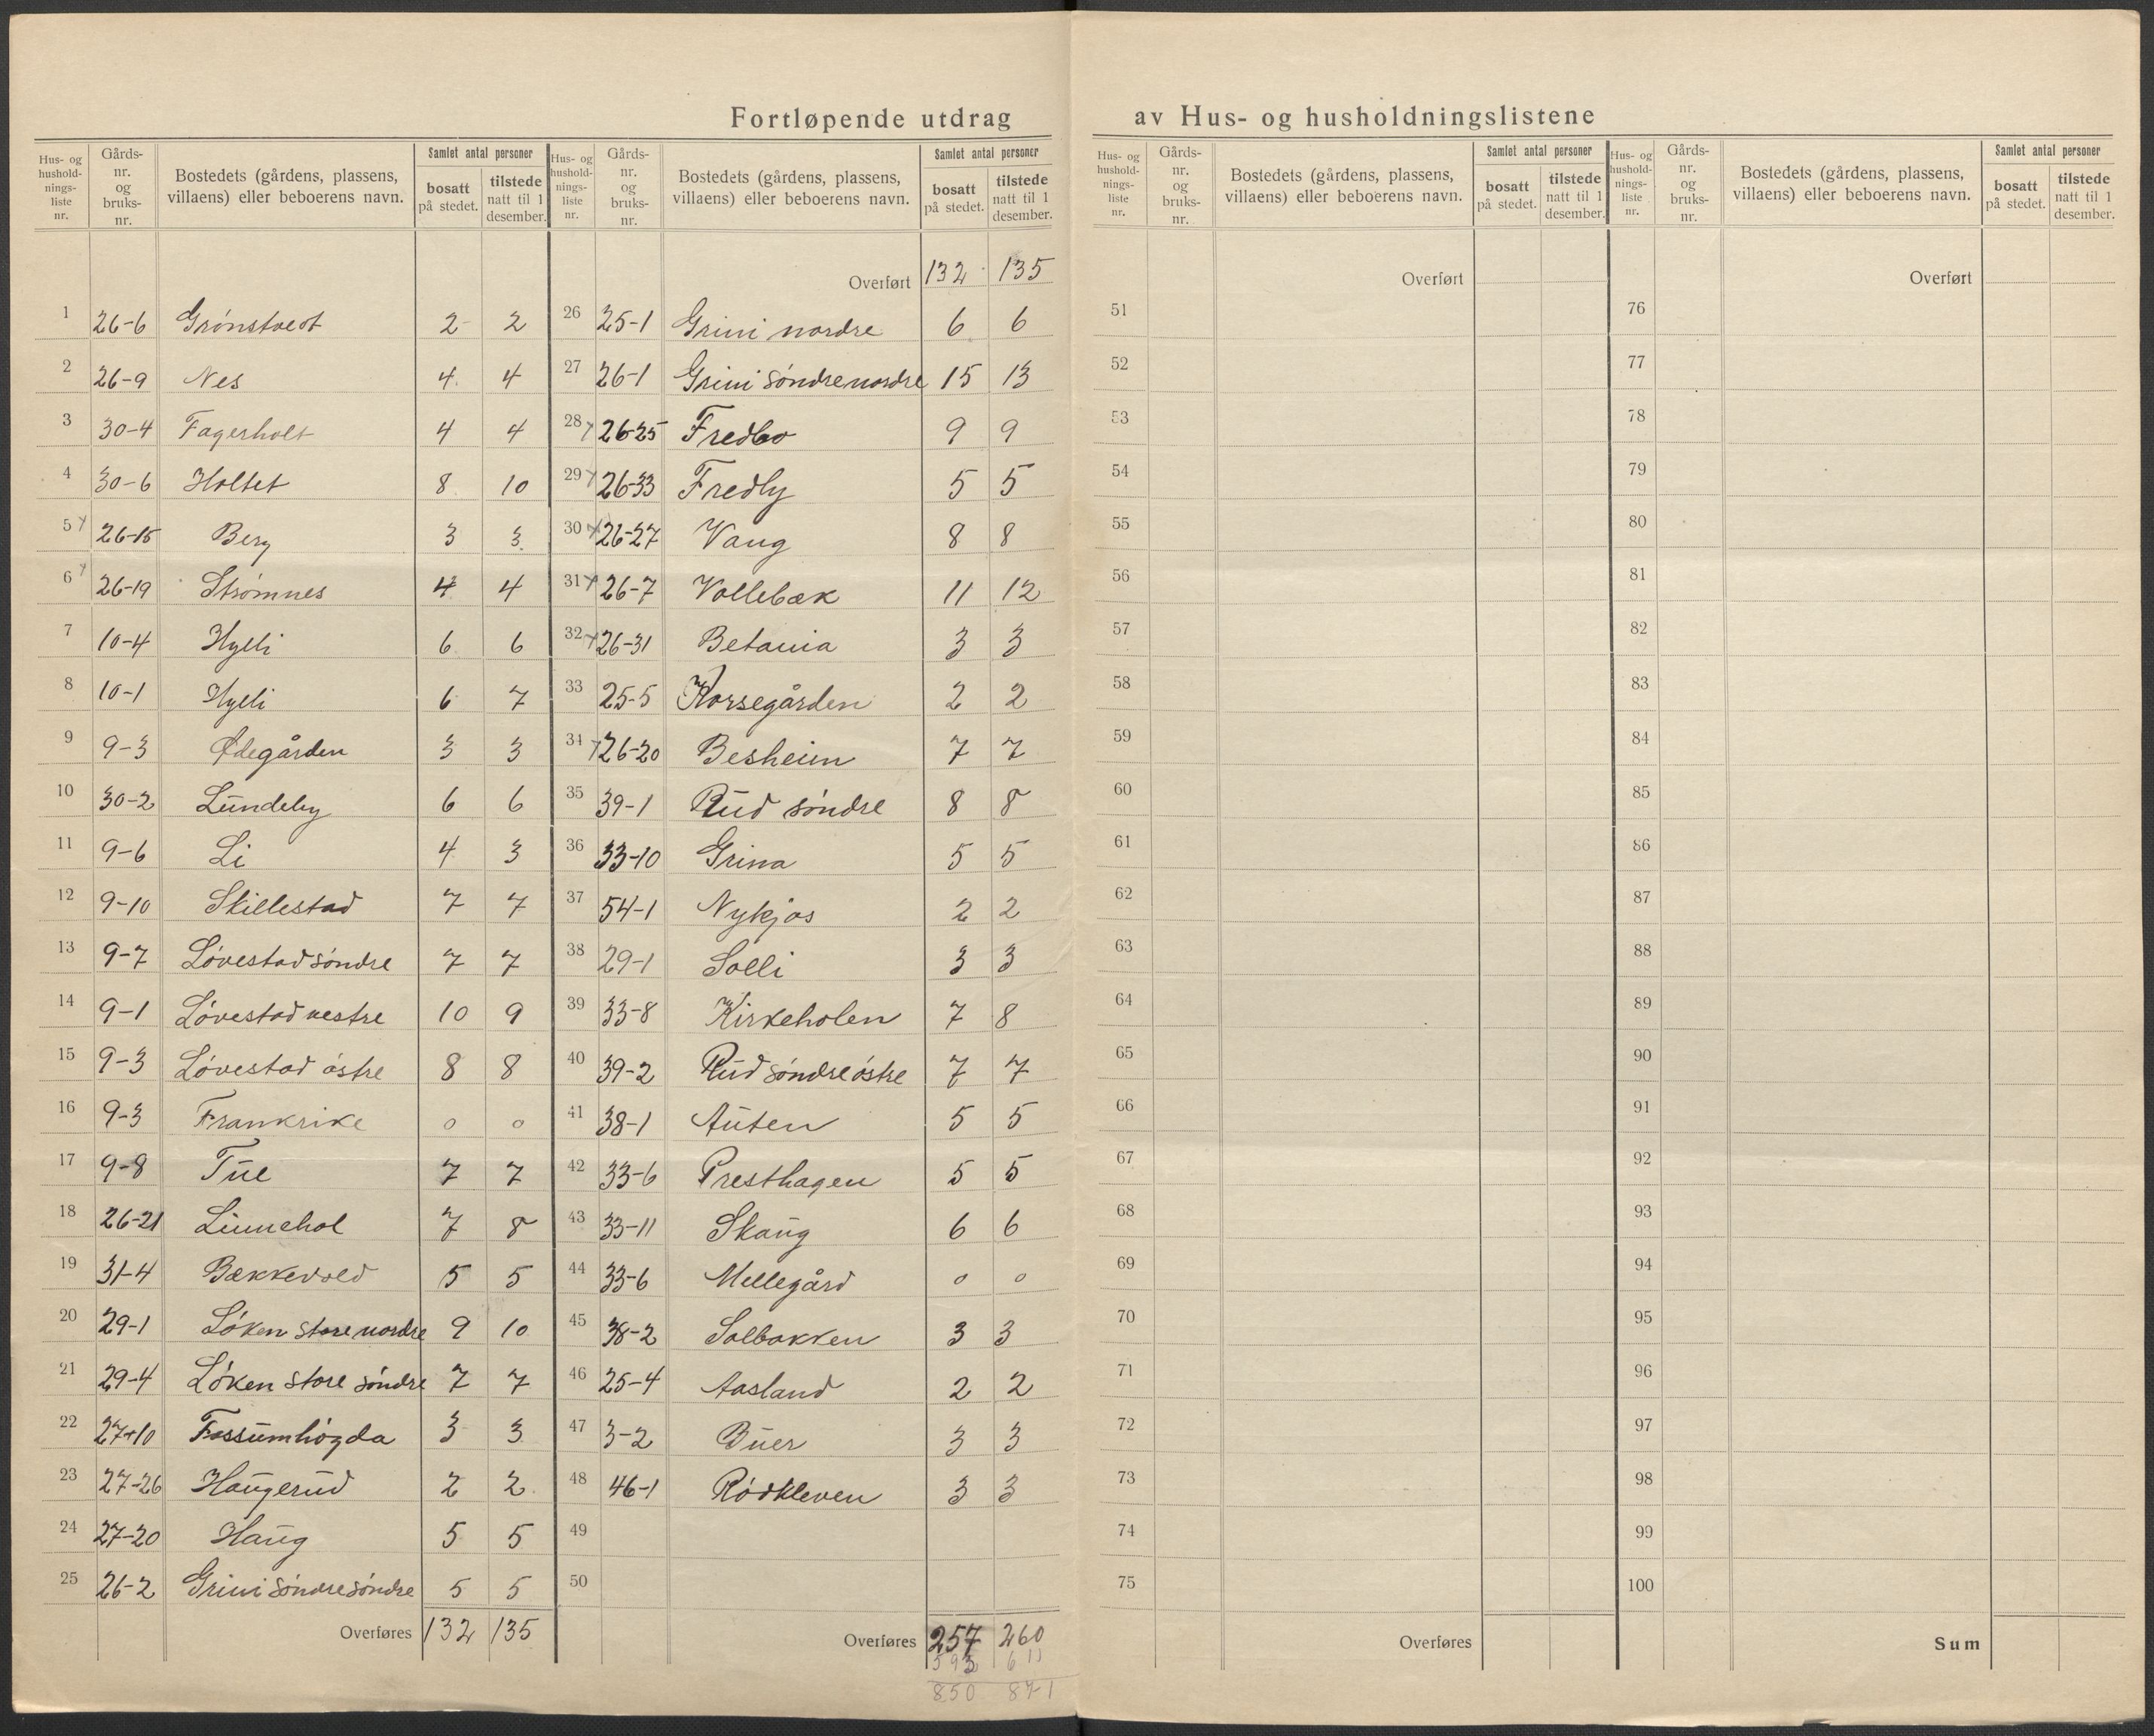 Fortløpende utdrag av Hus- og husholdningslistene
Hus- og hushold-nings-liste nr. Gårds-nr. og bruks-nr. Bostedets (gårdens, plassens, villaens) eller beboerens navn. Samlet antal personer bosatt på stedet. tilstede natt til 1 desember.
1 26-6 Grønstvedt 2 2
2 26-9 Nes 4 4
3 30-4 Fagerholt 4 4
4 30-6 Holtet 8 10
5 26-15 Berg 3 3
6 26-19 Strømnes 4 4
7 10-4 Hylli 6 6
8 10-1 Hylli 6 7
9 9-3 Ødegården 3 3
10 30-2 Lundeby 6 6
11 9-6 Li 4 3
12 9-10 Skillestad 7 7
13 9-7 Løvestad søndre 7 7
14 9-1 Løvestad vestre 10 9
15 9-3 Løvestad østre 8 8
16 9-3 Frankrike 0 0
17 9-8 Tue 7 7
18 26-21 Linnehol 7 8
19 31-4 Bækkevold 5 5
20 29-1 Løken store nordre 9 10
21 29-4 Løken store søndre 7 7
22 27+10 Fossumhøgda 3 3
23 27-26 Haugerud 2 2
24 27-20 Haug 5 5
25 26-2 Grini søndre søndre 5 5
Overføres 132 135
Hus- og hushold-nings-liste nr. Gårds-nr. og bruks-nr. Bostedets (gårdens, plassens, villaens) eller beboerens navn. Samlet antal personer bosatt på stedet. tilstede natt til 1 desember.
Overført 132 135
26 25-1 Grini nordre 6 6
27 26-1 Grini søndre nordre 15 13
28 26-25 Fredbo 9 9
29 26-33 Fredly 5 5
30 26-27 Vang 8 8
31 26-7 Vollebæk 11 12
32 26-31 Betania 3 3
33 25-5 Korsegården 2 2
34 26-20 Besheim 7 7
35 39-1 Rud søndre 8 8
36 33-10 Grina 5 5
37 54-1 Nykjos 2 2
38 29-1 Solli 3 3
39 33-8 Kirkeholen 7 8
40 39-2 Rud søndre østre 7 7
41 38-1 Auten 5 5
42 33-6 Presthagen 5 5
43 33-11 Skaug 6 6
44 33-6 Mellegård 0 0
45 38-2 Solbakken 3 3
46 25-4 Aasland 2 2
47 3-2 Buer 3 3
48 46-1 Rødkleven 3 3
49
50
Overføres 257 260
593 611
850 871
Hus- og hushold-nings-liste nr. Gårds-nr. og bruks-nr. Bostedets (gårdens, plassens, villaens) eller beboerens navn. Samlet antal personer bosatt på stedet. tilstede natt til 1 desember.
Overført
51
52
53
54
55
56
57
58
59
60
61
62
63
64
65
66
67
68
69
70
71
72
73
74
75
Overføres
Hus- og hushold-nings-liste nr. Gårds-nr. og bruks-nr. Bostedets (gårdens, plassens, villaens) eller beboerens navn. Samlet antal personer bosatt på stedet. tilstede natt til 1 desember.
Overført
76
77
78
79
80
81
82
83
84
85
86
87
88
89
90
91
92
93
94
95
96
97
98
99
100
Sum